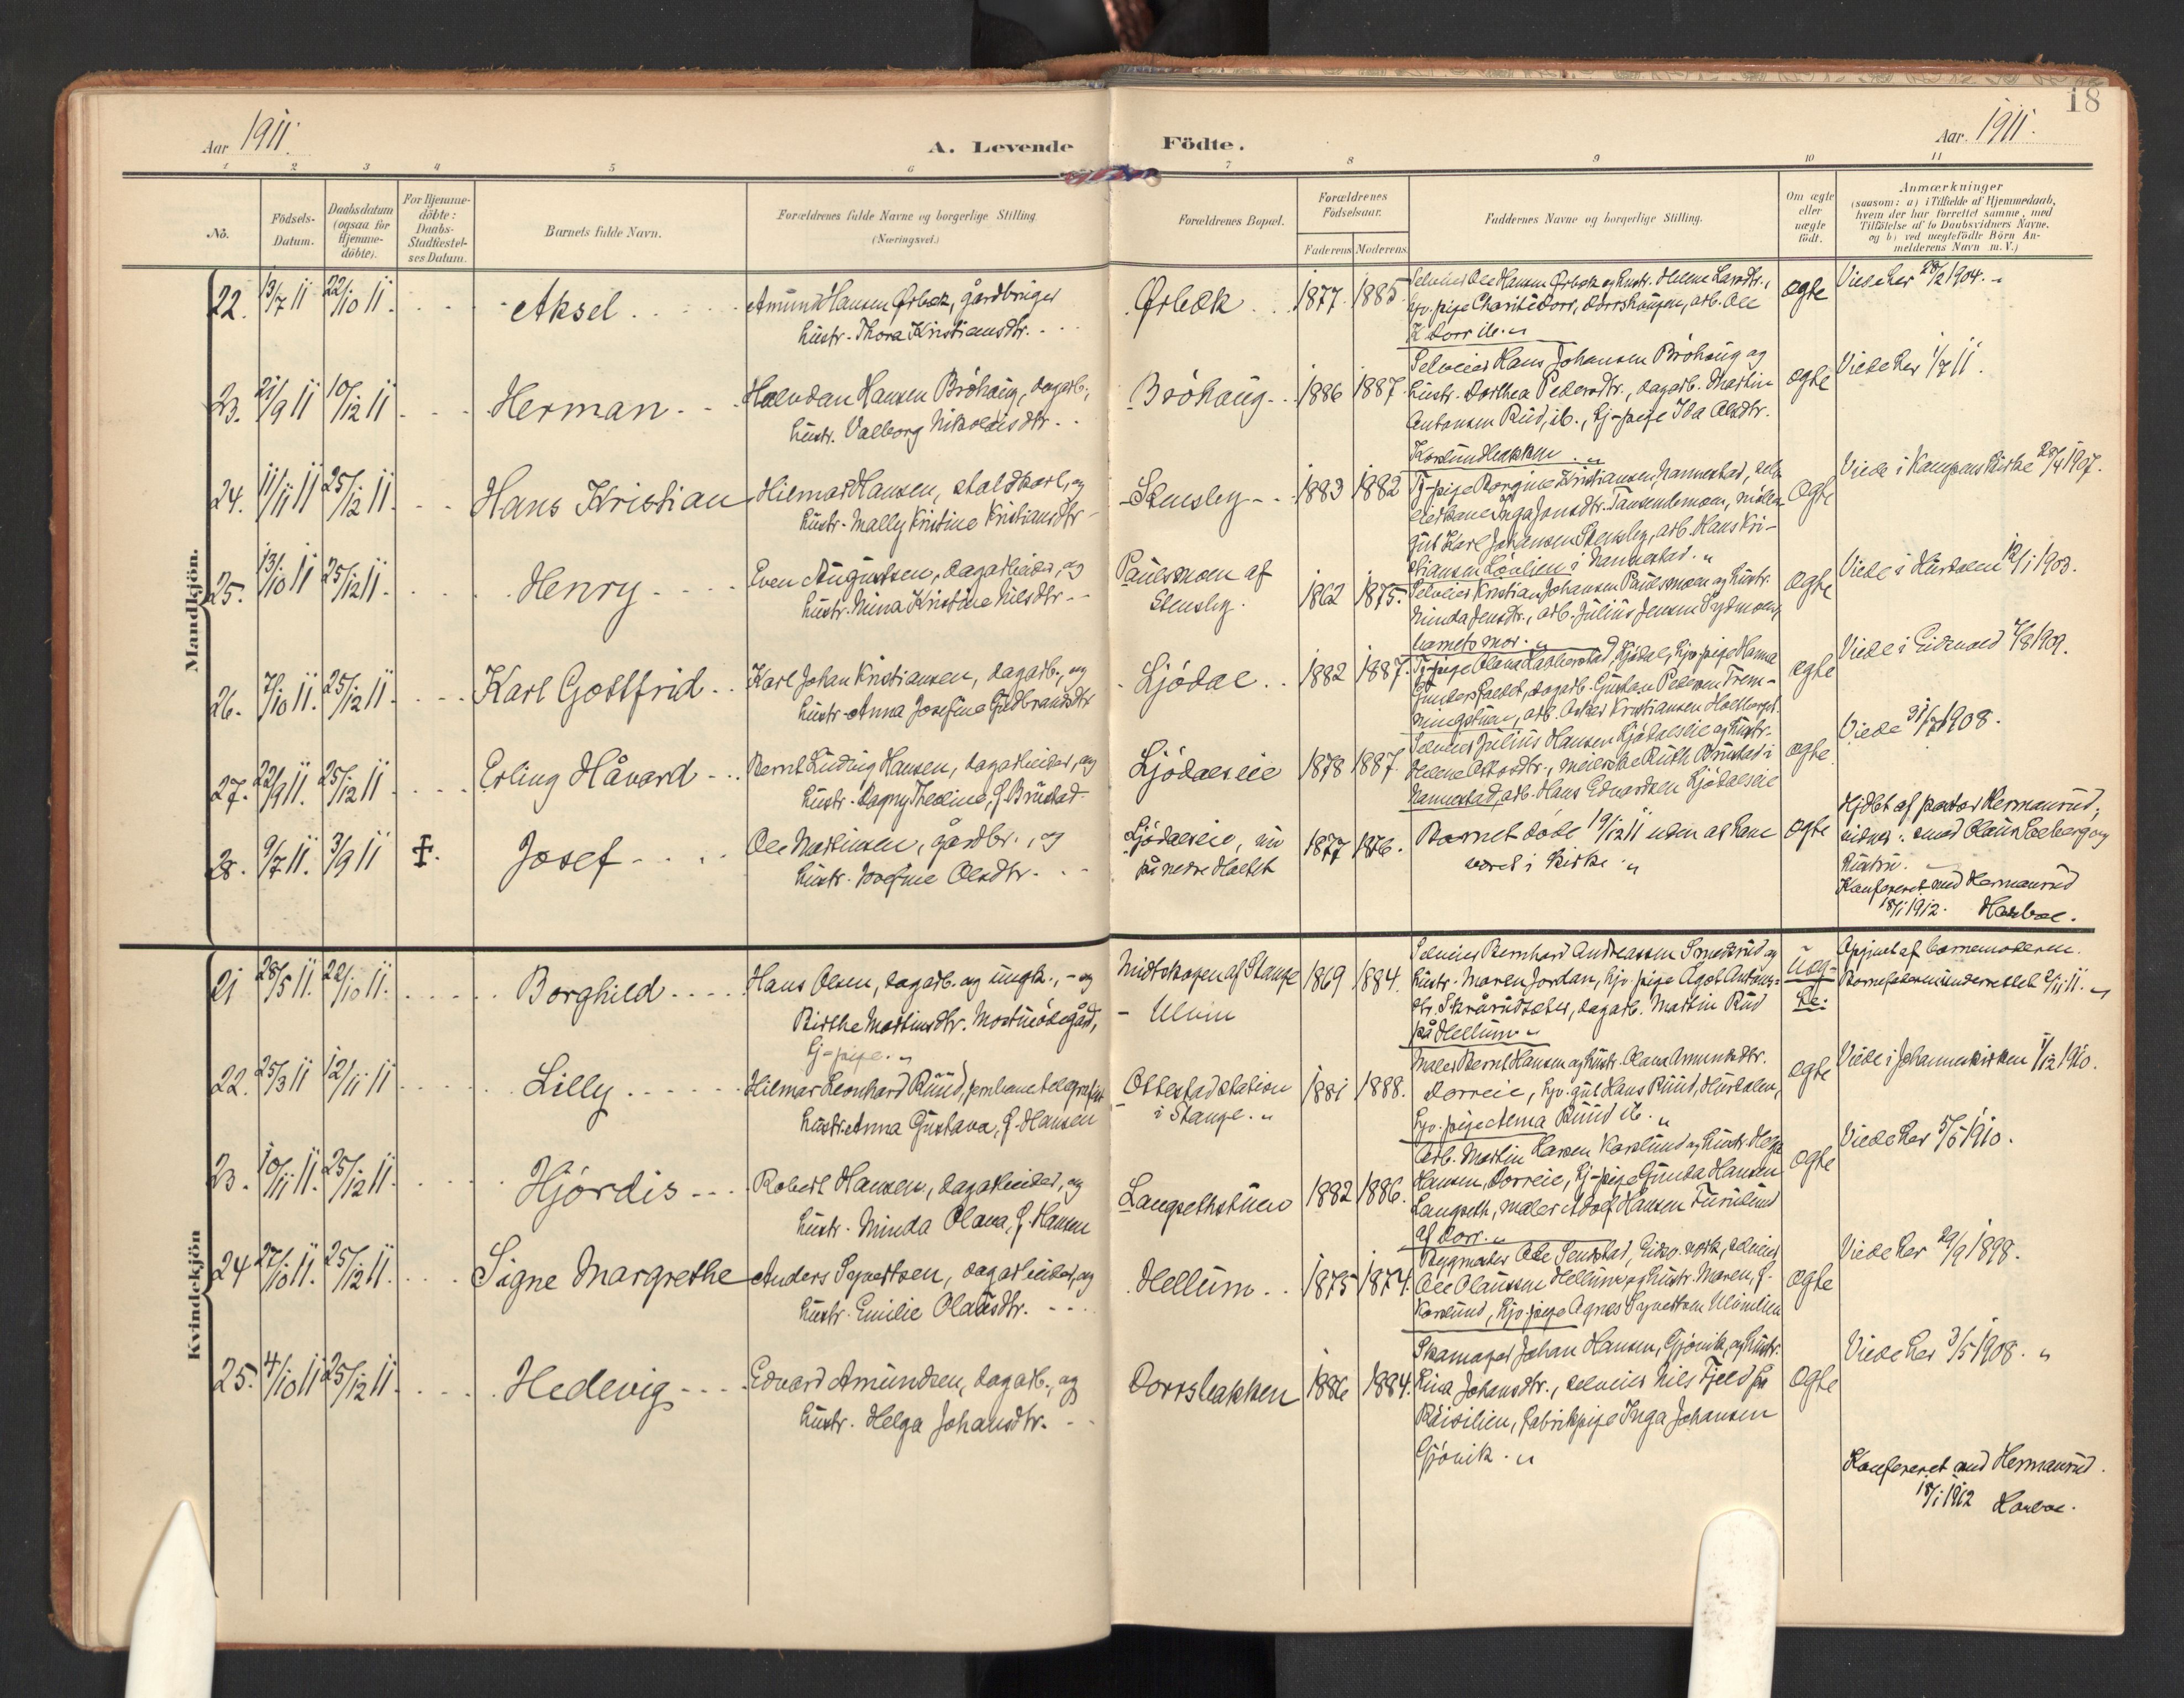 18
Aar 1911.
A. Levende Födte.
Aar. 1911.
1 2 3 4 5 6 7 8 9 10 11
No.
Födsels-Datum.
Daabsdatum (ogsaa for Hjemme-döbte).
For Hjemme-döbte: Daabs-Stadfæstel-ses Datum.
Barnets fulde Navn.
Forældrenes fulde Navne og borgerlige Stilling.
(Næringsvei.)
Forældrenes Bopæl.
Forældrenes Födselsaar.
Faderens Moderens
Faddernes Navne og borgerlige Stilling.
Om ægte eller uægte födt.
Anmærkninger
(saasom: a) i Tilfælde af Hjemmedaab,
hvem der har forrettet samme, med
Tilföielse af to Daabsvidners Navne,
og b) ved uægtefödte Börn An-
melderens Navn m. V.)
Mandkjön.
22. 13/7 11 22/10 11. Aksel Amund Hansen Ørbæk, gårdbruger
hustr. Thora Kristiansdtr. Ørbæk 1877 1885
Selveier Ole Hansen Ørbæk og hustr. Helene Larsdtr.,
tjv. pige Charite Dorr, Dorrshaugen, arb. Ole
K Dorr ib.
ægte Viede her 28/2 1904.
23. 21/9 11 10/12 11. Herman Halvdan Hansen Bröhaug, dagarb.,
hustr. Valborg Nikolaisdtr. Bröhaug 1886 1887
Selveier Hans Johansen Bröhaug og
hustr. Dorthea Pedersdtr., dagarb. Martin
Antonsen Rud, ib., tj-pige Ida Olsdtr.
Korslundbakken
ægte Viede her 1/7 11.
24. 11/11 11 25/12 11. Hans Kristian Hilmar Hansen, staldkarl, og
hustr. Mally Kristine Kristiansdtr Stensby 1883 1882
Tj-pige Borgine Kristiansen, Nannestad,
Inga Jonsdtr. Tansendemoen, möller
gut Karl Johansen Stensby, arb. Hans Kri-
stiansen i Nannestad.
ægte Viede i Kampens kirke 28/4 1907.
25. 13/10 11 25/12 11. Henry Even Augustsen, dagarbeider, og
hustr. Nina Kristine Nilsdtr Paulsmoen af
Stensby. 1862 1875.
Selveier Kristian Johansen Paulsmoen og hustr.
Minda Jensdtr., arb. Julius Jensen Sydmoen,
barnets mor.
ægte Viede i Hurdalen 12/1 1903.
26. 7/10 11. 25/12 11. Karl Gottfrid Karl Johan Kristiansen, dagarb., og
hustr. Anna Josefine Guldbrandsdtr Ljödal 1882 1887.
Tj-pige Olava, Ljödal, tjv. pige Hanna
dagarb. Gustav Pedersen Frem-
ningstuen, arb. Oskar Kristiansen
ægte Viede i Eidsvold 1909.
27. 22/9 11. 25/12 11. Erling Håvard Bernt Ludvig Hansen, dagarbeider, og
hustr. Dagny Theoline, f. Brustad Ljödalseie 1878 1887.
Selveier Julius Hansen Ljödalseie og hustr.
Helene, meierske Ruth Brustad i
Nannestad, arb. Hans Edvardsen Ljödalseie
ægte Viede 31/7 1908.
28. 9/7 11. 3/9 11 ‡. Josef Ole Martinsen, gårdbr., og
hustr. Josefine Olsdtr. Ljödalseie, nu
på nedre Holtet 1877 1876.
Barnet döde 19/12 11 uden at have
været i kirke
ægte Hjdbt af pastor Hermanrud;
vidner: smed Olaus og
hustru.
Konfereret med Hermanrud
18/1 1912. Harboe.
Kvindekjön
21 28/5 11. 22/10 11. Borghild Hans Olsen, dagarb. og ungk., - og
Birthe Martinsdtr. Mostuödegård,
tj-pige. Midtskogen af Stange
- Ulvin 1869 1884.
Selveier Bernhard Andreassen Smedsrud og
hustr. Maren Jordan, tjv. pige Agot Antons-
dtr. Skrårudsæter, dagarb. Martin Rud
på Hellum
Uæg-
te: Opgivet af barnemoderen.
Barnefaderen underrettet 2/11 11.
22. 25/3 11 12/11 11 Lilly Hilmar Leonhard Ruud, jernbanetelegrafist
hustr. Anna Gustava, f. Hansen Ottestad station
i Stange. 1881 1888.
Maler Bernt Hansen og hustr. Olava Amundsdtr.
Dorreie, tjv. gut Hans Ruud, Hurdalen,
tjv. pige Alma Ruud ib.
ægte Viede i Johanneskirken 1/12 1910.
23. 10/11 11. 25/12 11. Hjördis Robert Hansen, dagarbeider, og
hustr. Minda Olava, f. Hansen Langsethstuen 1882 1886.
Arb. Martin Larsen Korslund og hustr. Helga
Hansen, Dorreie, tj-pige Gunda Hansen
Langseth, maler Adolf Hansen Furulund
af Dorr.
ægte Viede her 5/5 1910.
24 27/10 11. 25/12 11. Signe Margrethe Anders Syvertsen, dagarbeider, og
hustr. Emilie Olausdtr. Hellum 1875 1874.
Bygmester Ole Sendstad, Eidsv. verk, selveier
Ole Olaussen Hellum og hustr. Maren, f.
Korslund, tjv. pige Agnes Syvertsen Ulvinlien
ægte Viede her 29/9 1898.
25. 4/10 11 25/12 11. Hedevig Edvard Amundsen, dagarb., og
hustr. Helga Johansdtr. Dorrsbakken 1886 1884.
Skomager Johan Hansen, Gjövik, og hustr.
Lina Johansdtr., selveier Nils Fjeld fra
Räisilien, fabrikpige Inga Johansen
Gjövik.
ægte Viede her 3/5 1908.
Konfereret med Hermanrud.
18/1 1912 Harboe.